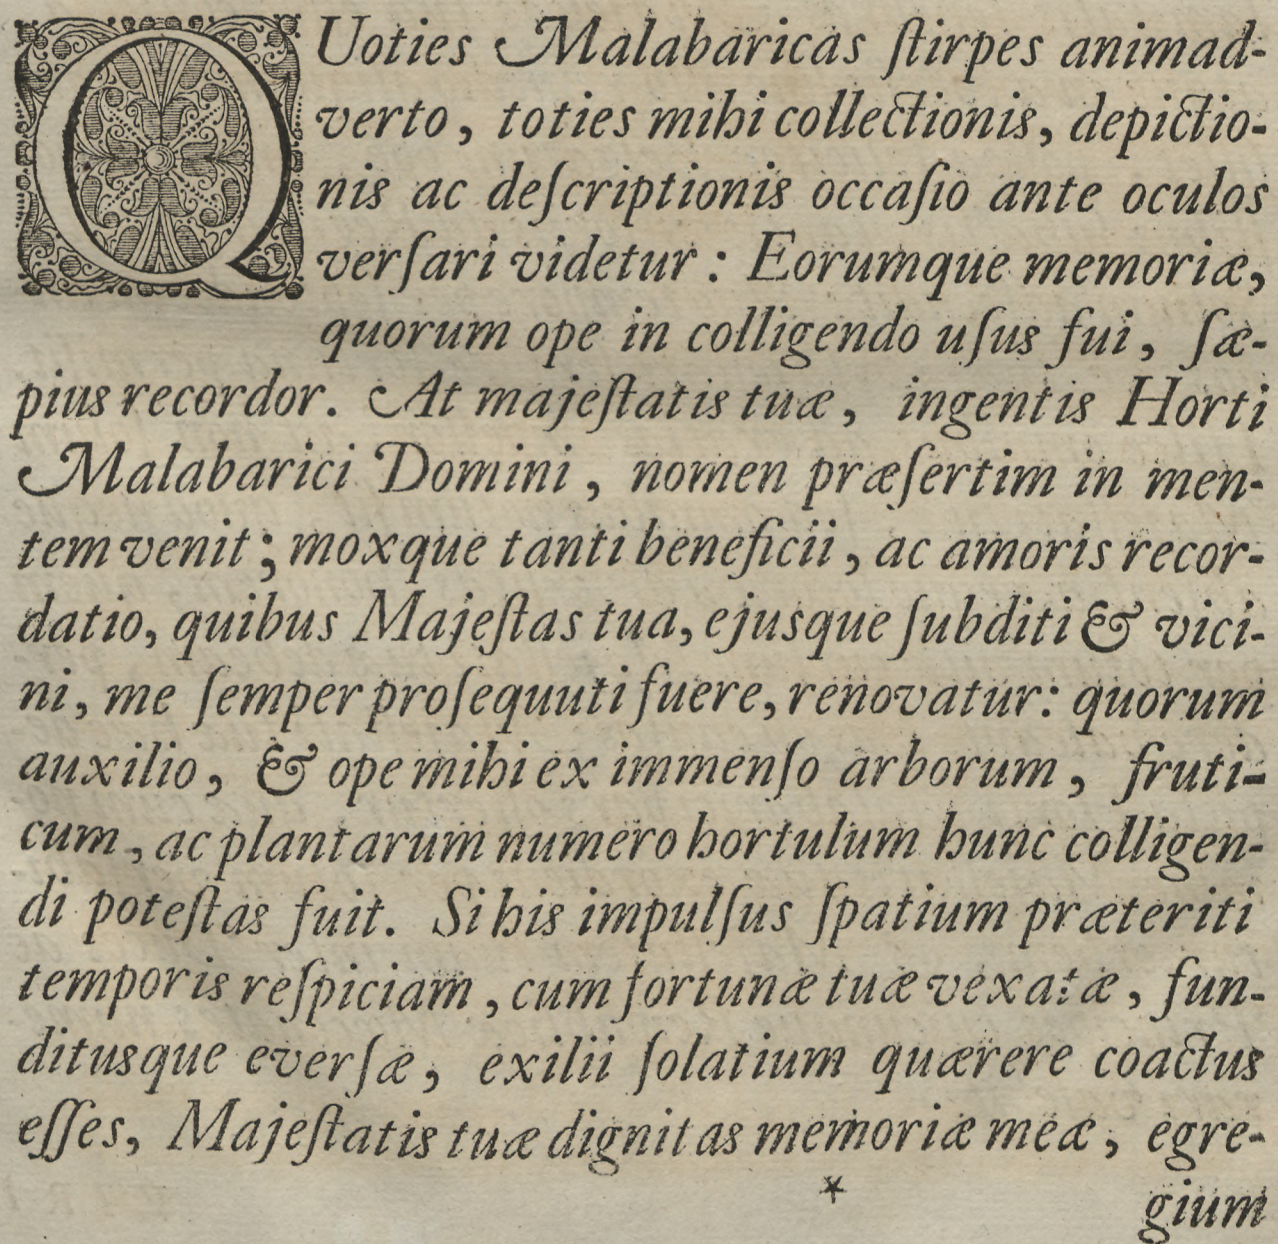 QUoties Malabaricas ſtirpes animad-
verto, toties mihi collectionis, depictio-
nis ac deſcriptionis occaſio ante oculos
verſari videtur: Eorumque memoriæ,
quorum ope in colligendo uſus fui, ſæ-
pius recordor. At majeſtatis tuæ, ingentis Horti
Malabarici Domini, nomen præſertim in men-
tem venit; moxque tanti beneficii, ac amoris recor-
datio, quibus Majeſtas tua, ejusque ſubditi & vici-
ni, me ſemper proſequuti fuere, renovatur: quorum
auxilio, & ope mihi ex immenſo arborum, fruti-
cum, ac plantarum numero hortulum hunc colligen-
di poteſtas fuit. Si his impulſus ſpatium præteriti
temporis reſpiciam, cum fortunæ tuæ vexatæ, fun-
ditusque everſæ, exilii ſolatium quærere coactus
eſſes, Majeſtatis tuæ dignitas memoriæ meæ, egre-
* gium